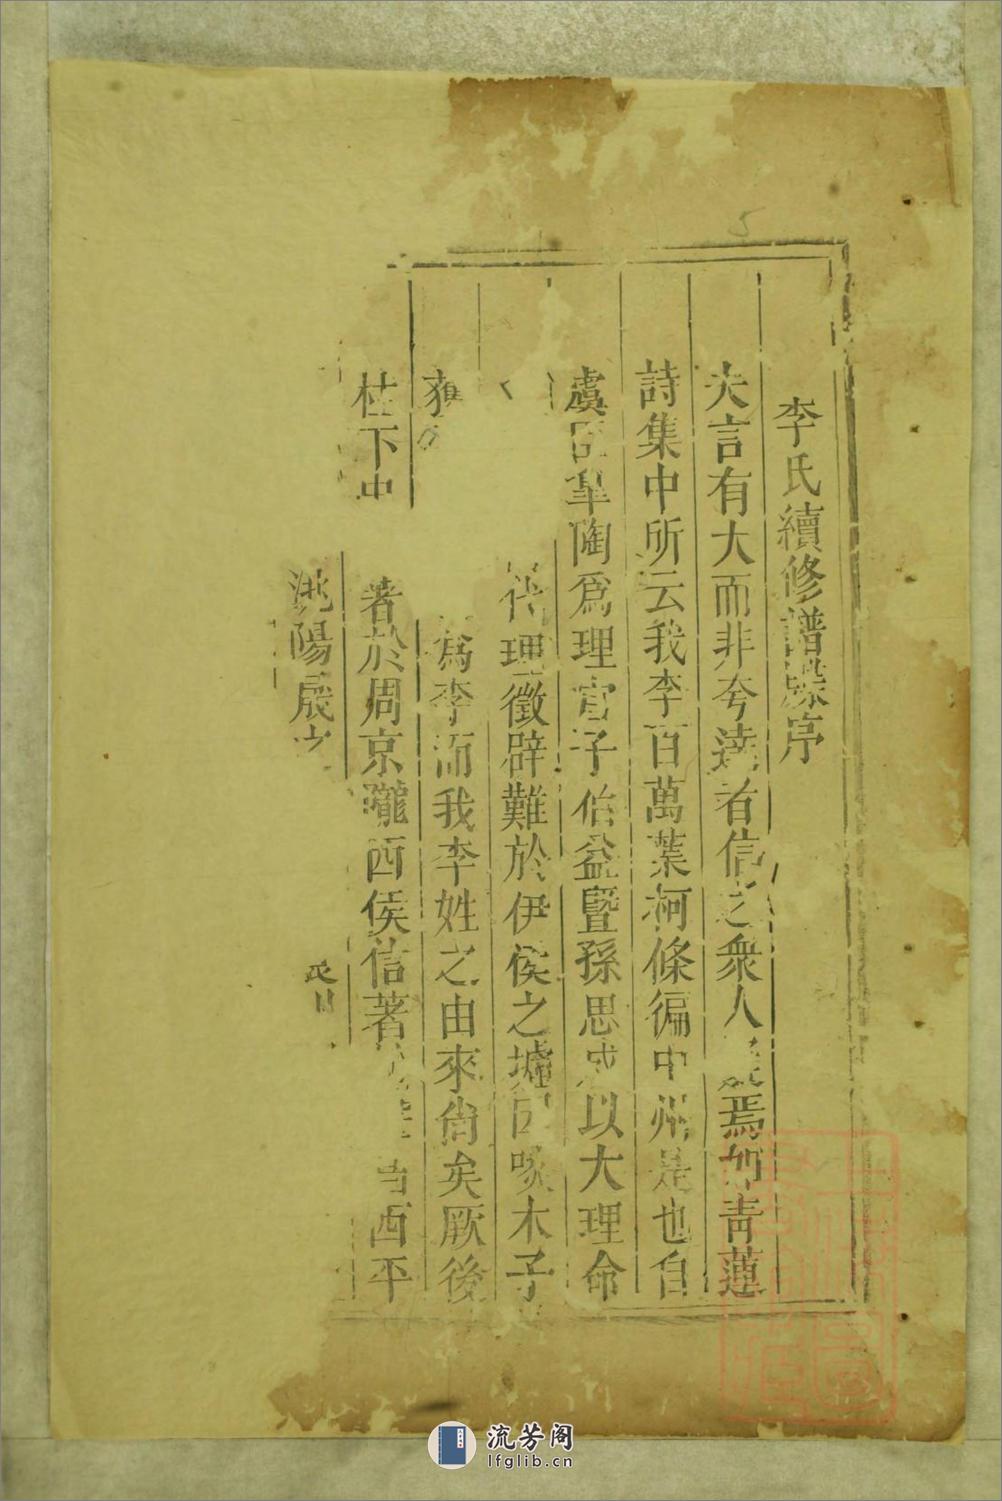 李氏續修譜牒序
夫言有大而非夸達者信之衆人疑焉如青蓮
詩集中所云我李百萬葉柯條徧中州是也自
虞臣皐陶爲理官子伯益暨孫思成以大理命
理徵辟難於伊侯之墟因啖木子
爲李而我李姓之由來尙矣厥後
柱下史 著於周京隴西侯信著 西平
洮陽晟
5
流芳阁
lfglib.cn